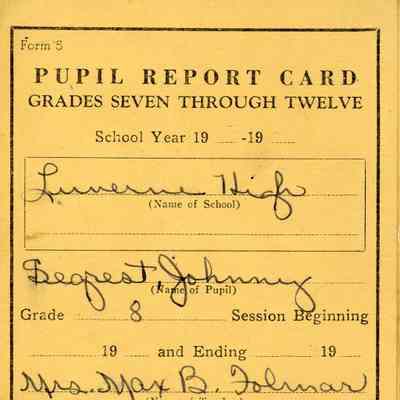 Form 5
PUPIL REPORT CARD
GRADES SEVEN THROUGH TWELVE
School Year 19 -19
Luverne High
(Name of School)
Segrest, Johnny
(Name of Pupil)
Grade 8 Session Beginning
19 and Ending 19
Mrs. Max B. Folmar